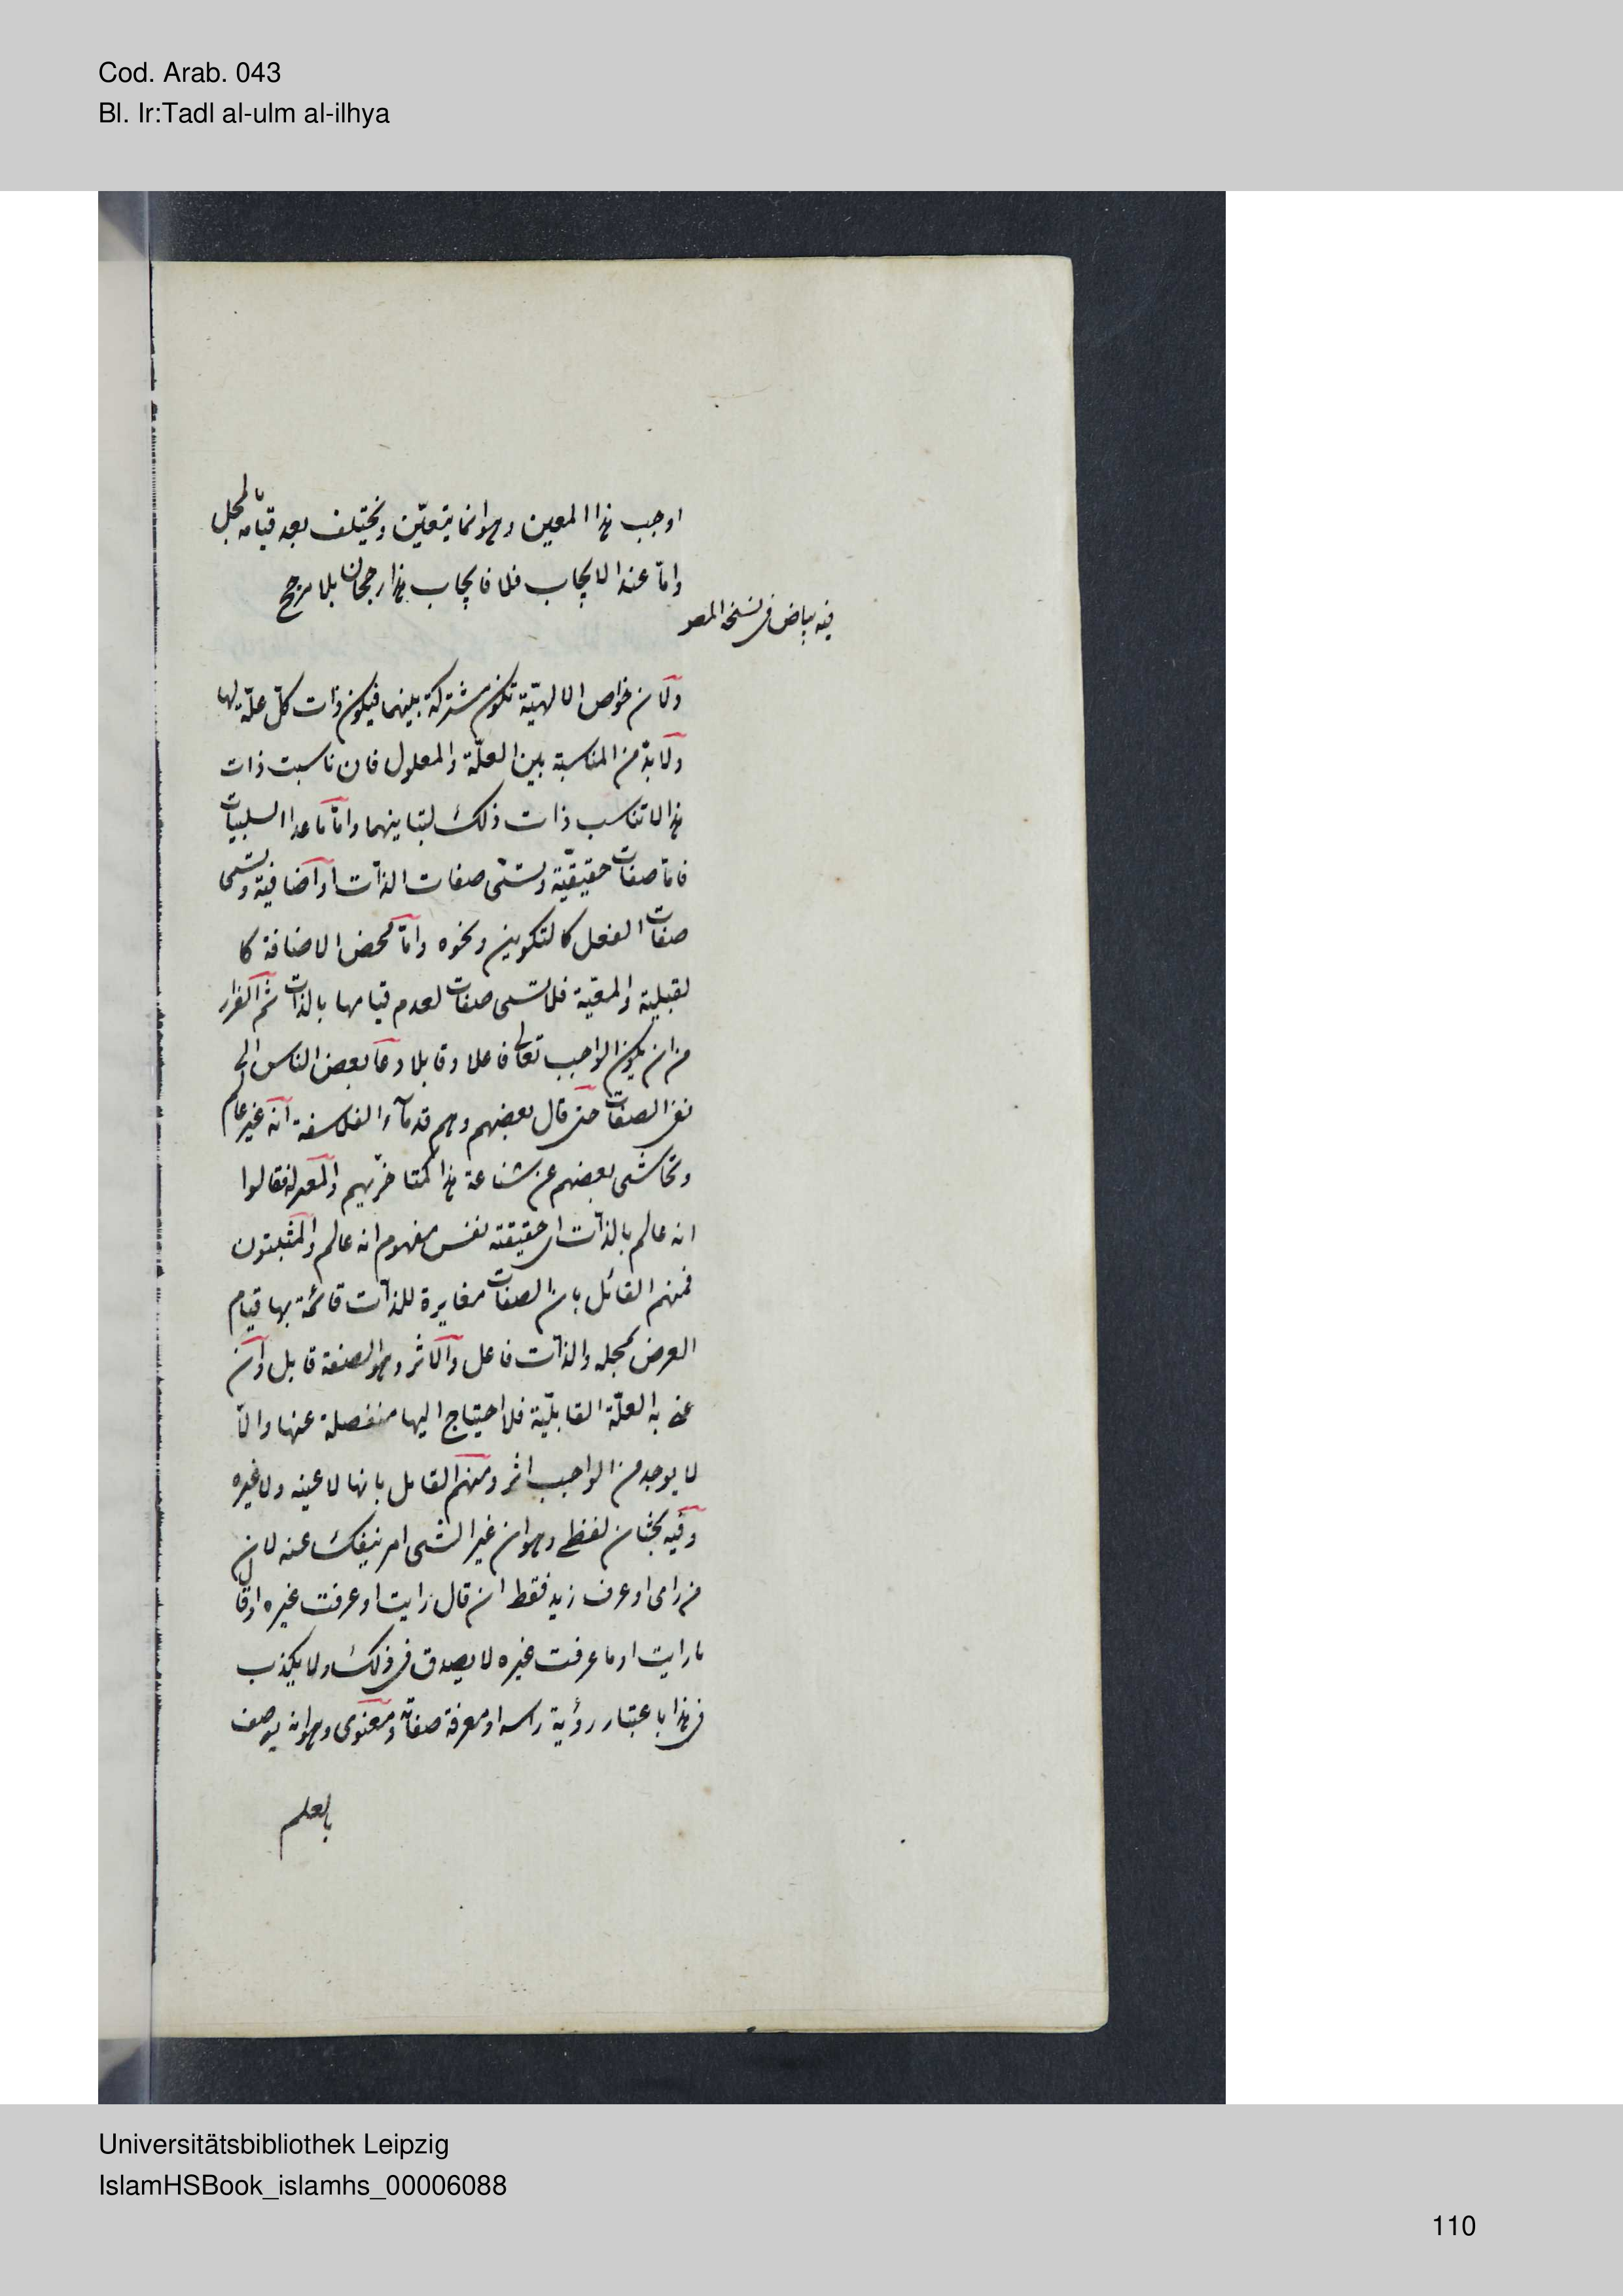 Cod. Arab. 043
Bl. Ir:Tadl al-ulm al-ilhya
اوجب هذا المعين وهو انما يتعيّن ويختلف بعد قيامه بالمحل
وامّا عند الايجاب فلا فايجاب هذا رجحان بلا مرجح
فيه بياض فى نسخة المص
ولان خواص الالهيّة تكون مشتركة بينهما فيكون ذات كلّ علّة لها
ولا بدّ من المناسبة بين العلّة والمعلول فان ناسبت ذات
هذا لا تناسب ذات ذلك لتباينهما وامّا ما عدا السلبيات
فامّا صفات حقيقيّة وتسمّى صفات الذات او اضافية وتسمى
صفات الفعل كالتكوين ونحوه وامّا محض الاضافة كا
لقبلية والمعيّة فلا تسمى صفات لعدم قيامها بالذات ثم الفرار
من ان يكون الواجب تعالى فاعلا وقابلا دعا بعض الناس الى
نفى الصفات حتى قال بعضهم وهم قدماء الفلاسفة انه غير عالم
وتحاشى بعضهم عن شناعة هذا كمتاخريهم والمعتزلة فقالوا
انه عالم بالذات اى حقيقته نفس مفهوم انه عالم والمثبتون
فمنهم القائل بان الصفات مغايرة للذات قائمة بها قيام
العرض بمحله والذات فاعل والاثر وهو الصفة قابل وان
عنى به العلّة القابليّة فلا احتياج اليها منفصلة عنها والّا
لا يوجد من الواجب اثر ومنهم القايل بانها لا عينه ولا غيره
وفيه بحثان لفظى وهو ان غير الشى امر ينفك عنه لان
من راى او عرف زيد فقط ان قال رايت او عرفت غيره او قال
ما رايت او ما عرفت غيره لا يصدق فى ذلك ولا يكذب
فى هذا باعتبار رؤية راسه او معرفة صفاته ومعنوى وهو انه يوصف
بالعلم
Universitätsbibliothek Leipzig
IslamHSBook_islamhs_00006088
110